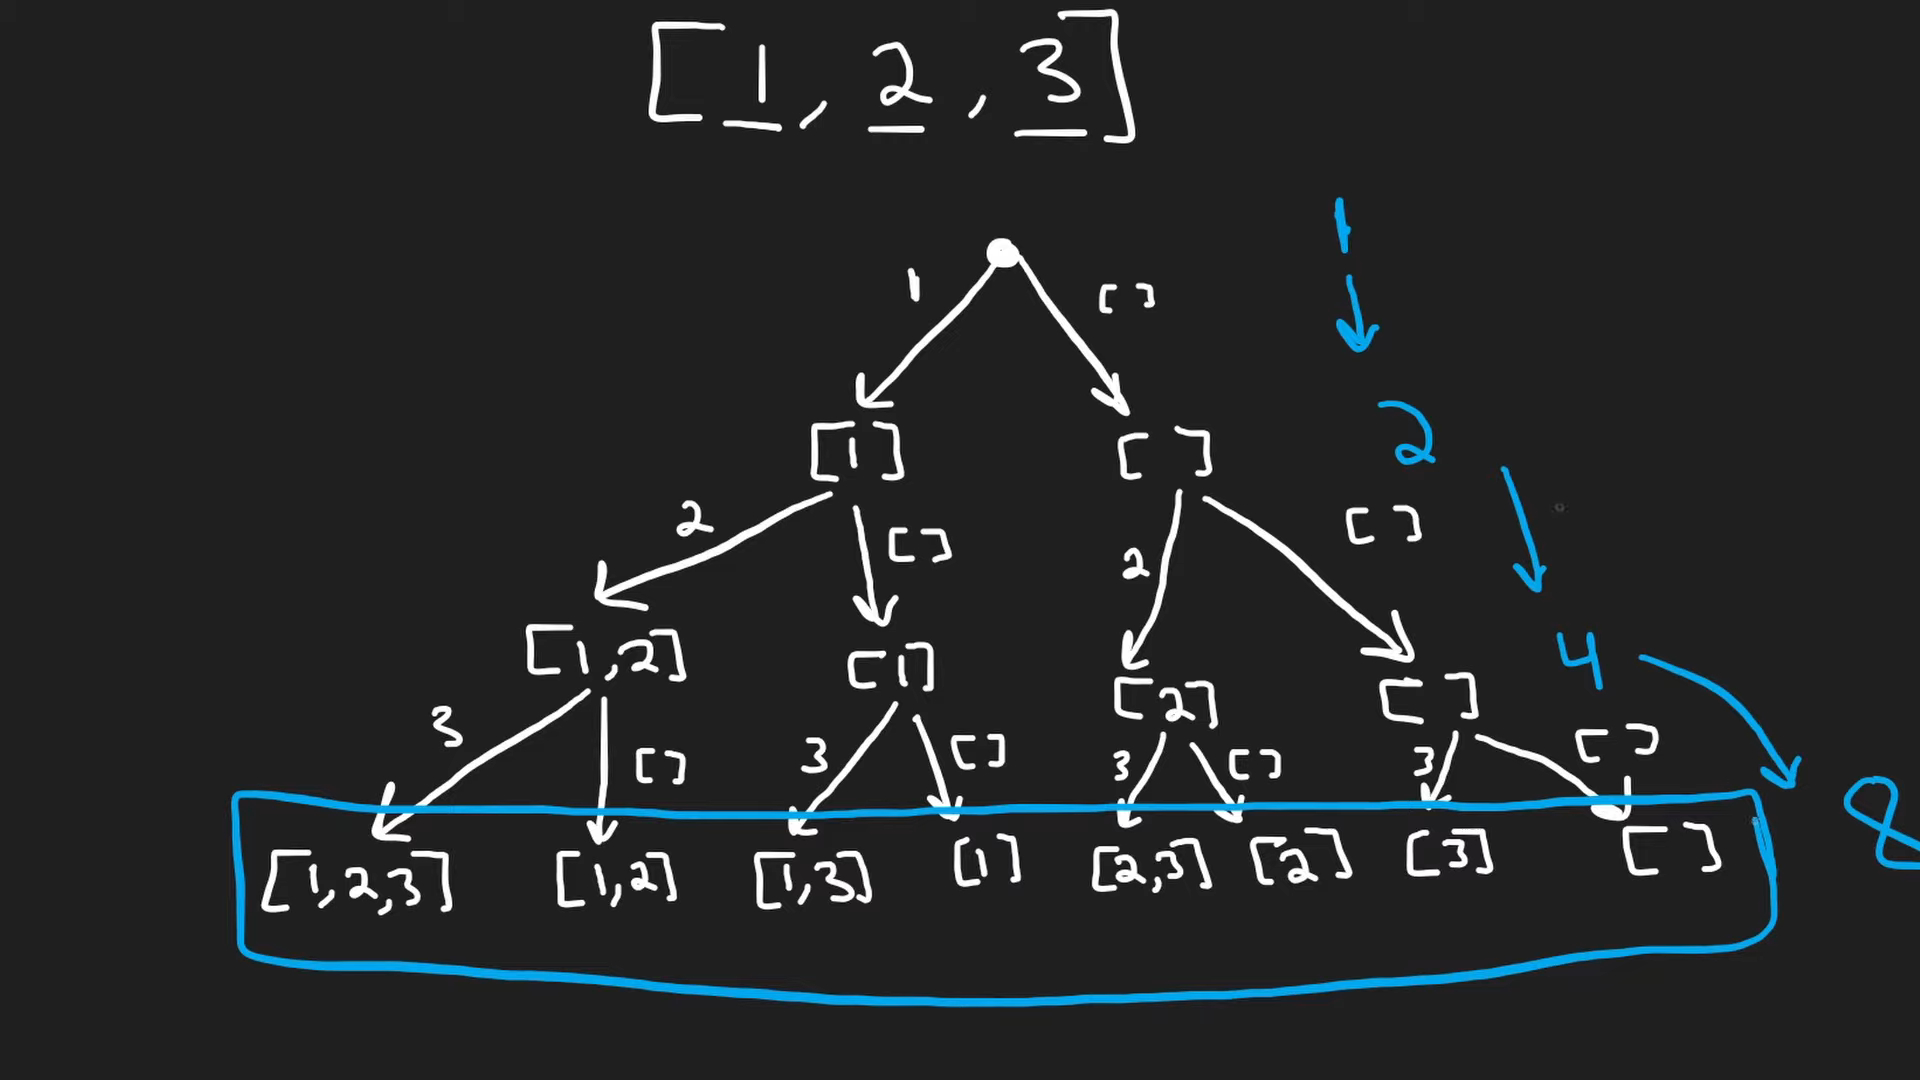 [1, 2, 3]
1
1 []
[1] [] 2
2 [] 2 []
[1,2] [1] [2] [] 4
3 [] 3 [] 3 [] 3 []
[1,2,3] [1,2] [1,3] [1] [2,3] [2] [3] [] 8